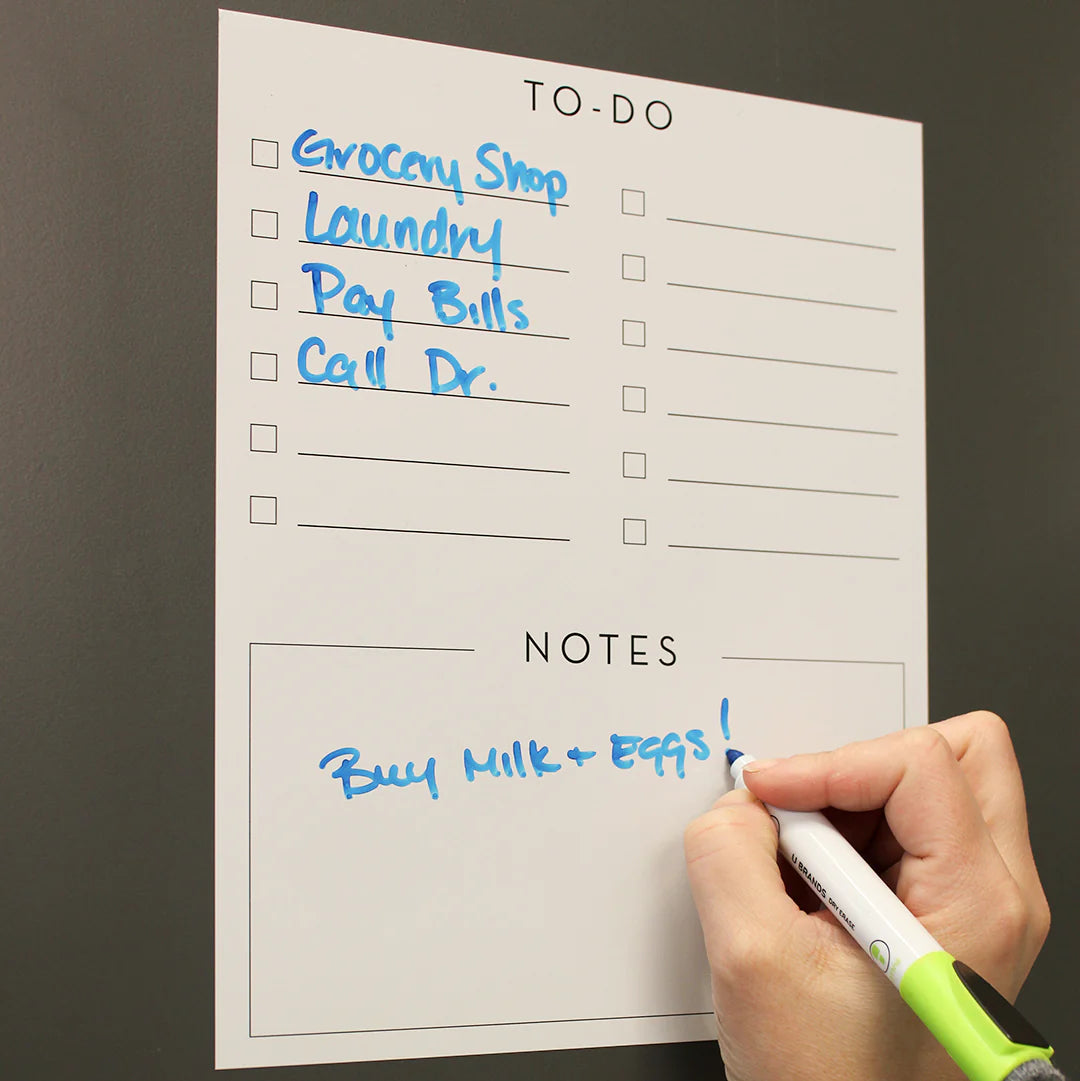 TO-DO
Grocery Shop
Laundry
Pay Bills
Call Dr.
NOTES
Buy Milk + Eggs!
U BRANDS DRY ERASE